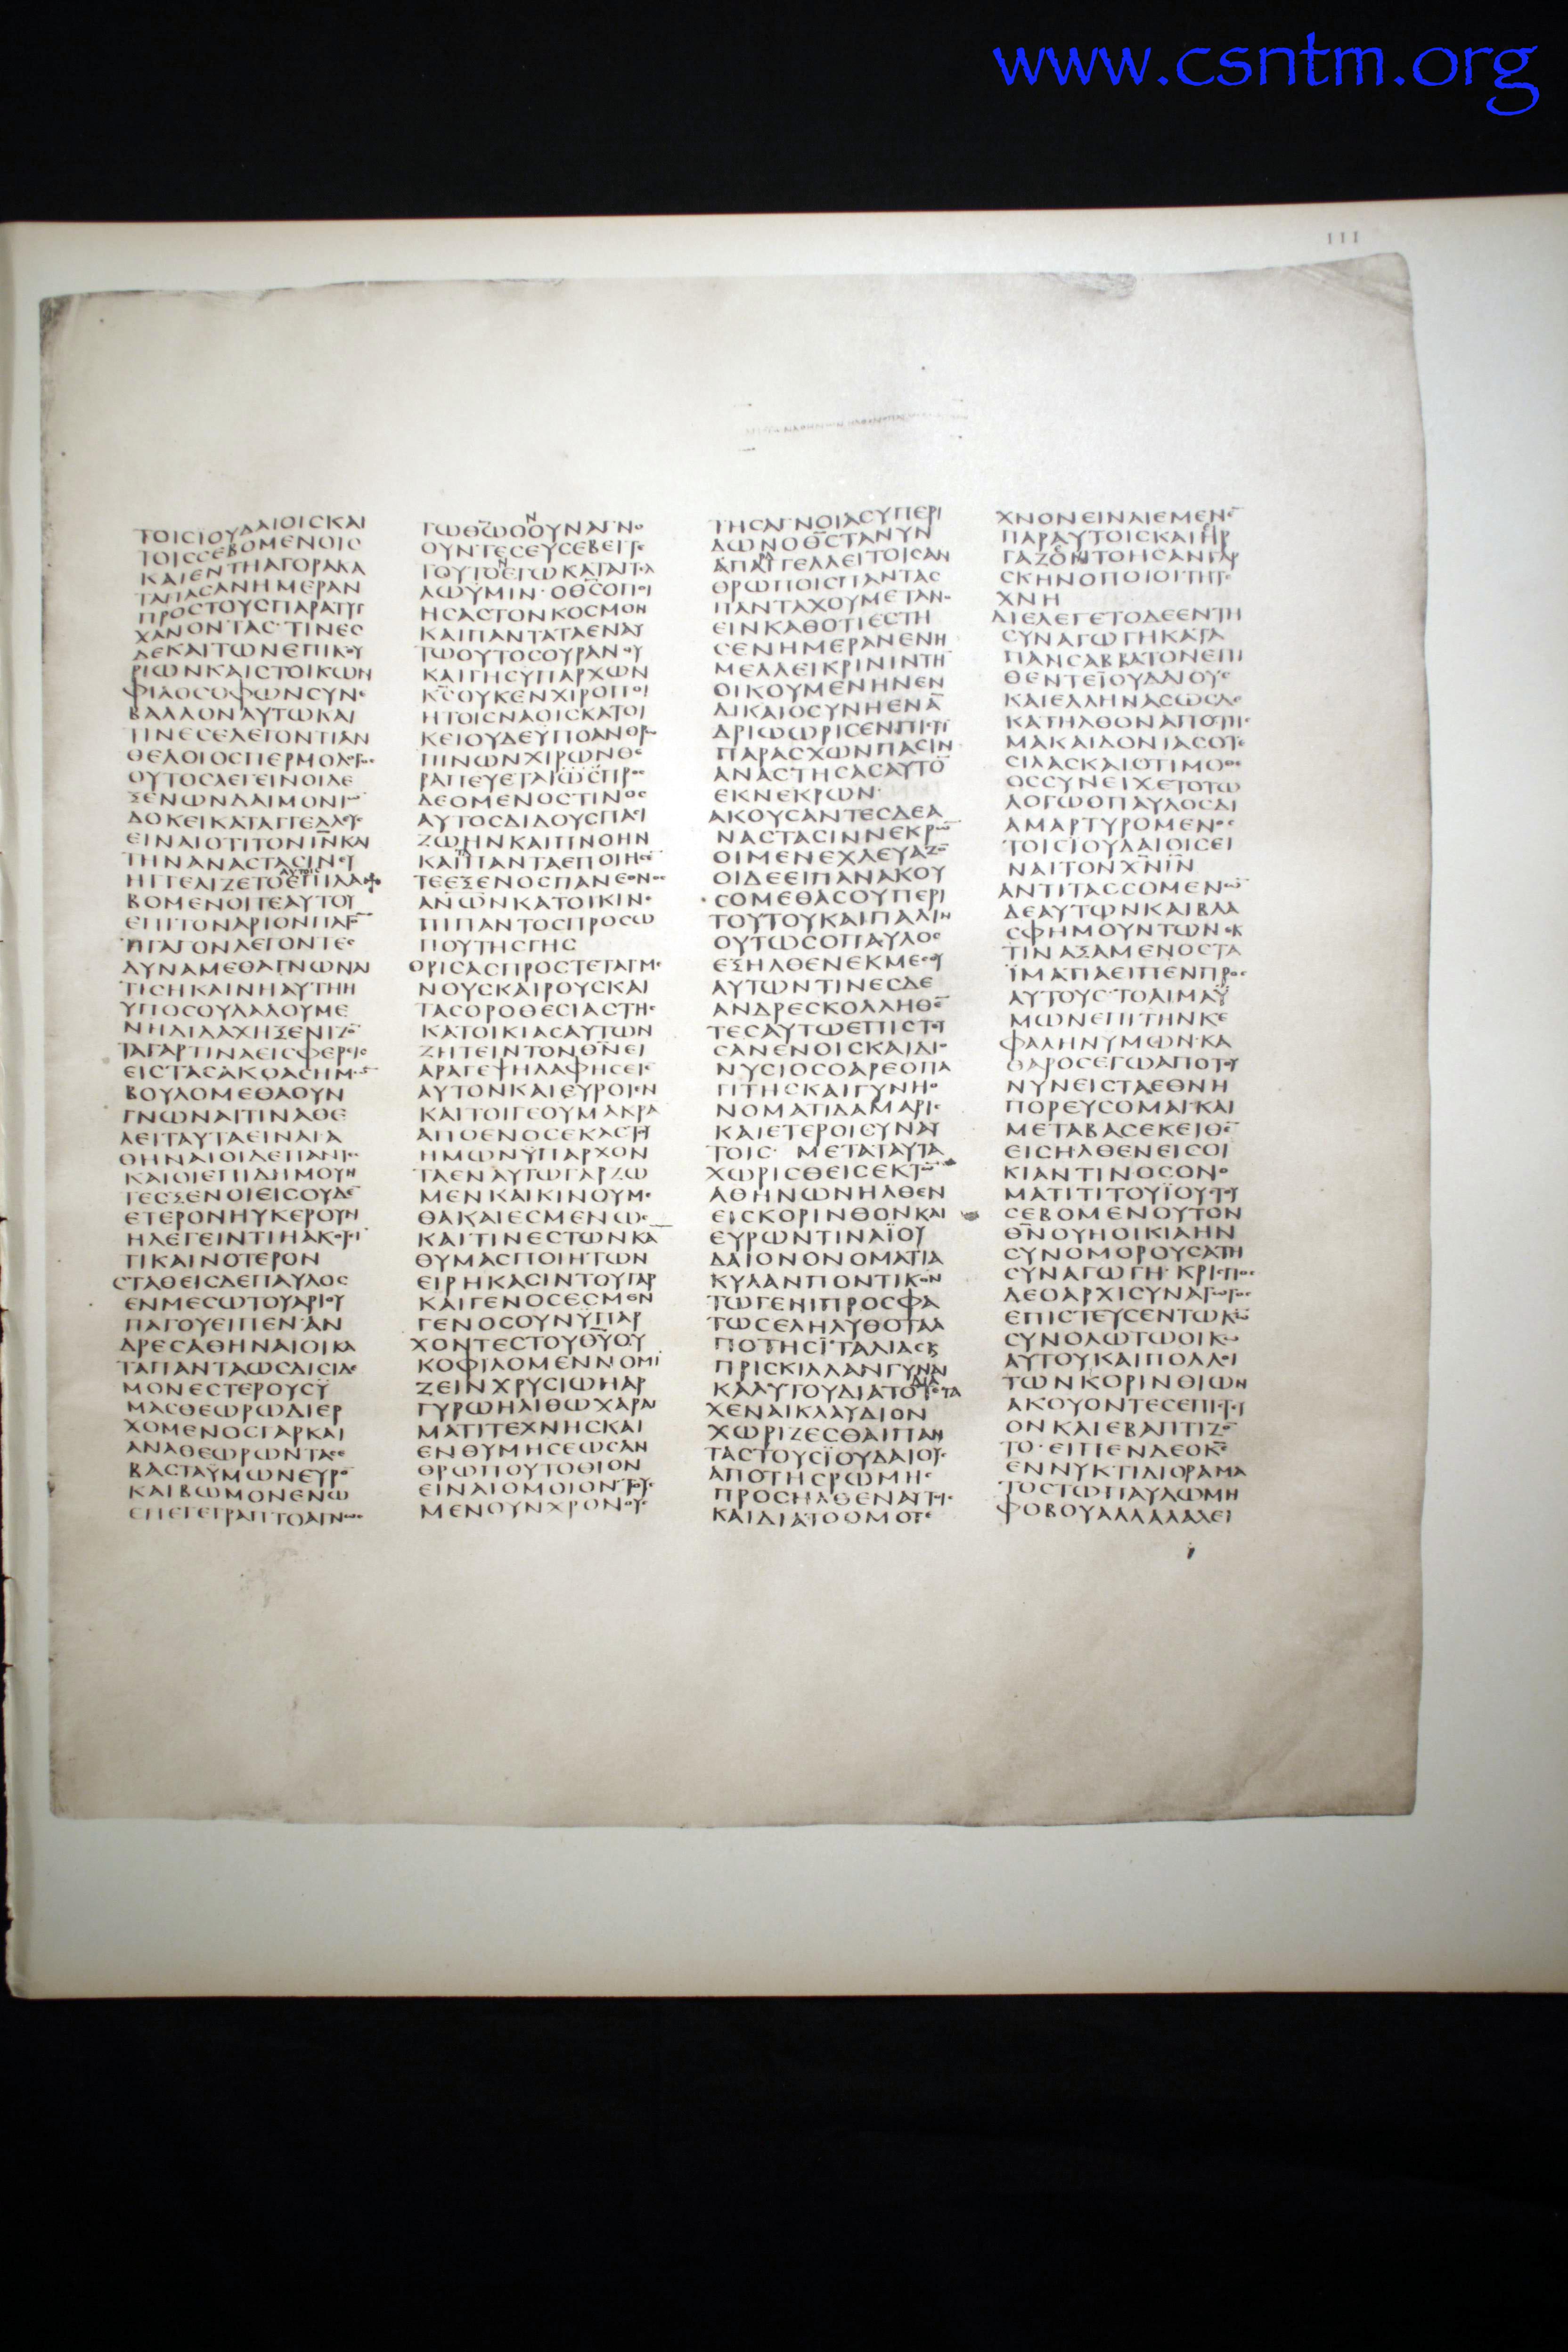 www.csntm.org
111
ΤΟΙCΪΟΥΔΑΙΟΙCΚΑΙ
ΤΟΙCCΕΒΟΜΕΝΟΙC
ΚΑΙΕΝΤΗΑΓΟΡΑΚΑ
ΤΑΠΑCΑΝΗΜΕΡΑΝ
ΠΡΟCΤΟΥCΠΑΡΑΤΥΓ
ΧΑΝΟΝΤΑC·ΤΙΝΕC
ΔΕΚΑΙΤΩΝΕΠΙΚΟΥ
ΡΙΩΝΚΑΙCΤΟΙΚΩΝ
ΦΙΛΟCΟΦΩΝCΥΝΕ
ΒΑΛΛΟΝΑΥΤΩΚΑΙ
ΤΙΝΕCΕΛΕΓΟΝΤΙΑΝ
ΘΕΛΟΙΟCΠΕΡΜΟΛΟΓΟC
ΟΥΤΟCΛΕΓΕΙΝΟΙΔΕ
ΞΕΝΩΝΔΑΙΜΟΝΙΩ̅
ΔΟΚΕΙΚΑΤΑΓΓΕΛΕΥC
ΕΙΝΑΙΟΤΙΤΟΝΙ̅Ν̅ΚΑΙ
ΤΗΝΑΝΑCΤΑCΙΝΕΥ
ΗΓΓΕΛΙΖΕΤΟΕΠΙΛΑ
ΒΟΜΕΝΟΙΤΕΑΥΤΟΥ
ΕΠΙΤΟΝΑΡΙΟΝΠΑΓΟ̅
ΗΓΑΓΟΝΛΕΓΟΝΤΕC
ΔΥΝΑΜΕΘΑΓΝΩΝΑΙ
ΤΙCΗΚΑΙΝΗΑΥΤΗΗ
ΥΠΟCΟΥΛΑΛΟΥΜΕ
ΝΗΔΙΔΑΧΗΞΕΝΙΖΟ̅
ΤΑΓΑΡΤΙΝΑΕΙCΦΕΡΕΙC
ΕΙCΤΑCΑΚΟΑCΗΜΩ̅
ΒΟΥΛΟΜΕΘΑΟΥΝ
ΓΝΩΝΑΙΤΙΝΑΘΕ
ΛΕΙΤΑΥΤΑΕΙΝΑΙΑ
ΘΗΝΑΙΟΙΔΕΠΑΝΤΕC
ΚΑΙΟΙΕΠΙΔΗΜΟΥΝ
ΤΕCΞΕΝΟΙΕΙCΟΥΔΕ̅
ΕΤΕΡΟΝΗΥΚΕΡΟΥΝ
ΗΛΕΓΕΙΝΤΙΗΑΚΟΥΕΙ
ΤΙΚΑΙΝΟΤΕΡΟΝ
CΤΑΘΕΙCΔΕΠΑΥΛΟC
ΕΝΜΕCΩΤΟΥΑΡΙΟΥ
ΠΑΓΟΥΕΙΠΕΝ·ΑΝ
ΔΡΕCΑΘΗΝΑΙΟΙΚΑ
ΤΑΠΑΝΤΑΩCΔΙCΙΔΕ
ΜΟΝΕCΤΕΡΟΥCΫ
ΜΑCΘΕΩΡΩΔΙΕΡ
ΧΟΜΕΝΟCΓΑΡΚΑΙ
ΑΝΑΘΕΩΡΩΝΤΑCΕ
ΒΑCΤΑΫΜΩΝΕΥΡΟ̅
ΚΑΙΒΩΜΟΝΕΝΩ
ΕΠΕΓΕΓΡΑΠΤΟΑΓΝΩC
ΤΩΘ̅Ω̅ΟΟΥΝΑΓΝΟ
ΟΥΝΤΕCΕΥCΕΒΕΙΤΕ
ΤΟΥΤΟΕΓΩΚΑΤΑΓΓΕΛ
ΛΩΫΜΙΝ·ΟΘ̅C̅ΟΠΟΙ
ΗCΑCΤΟΝΚΟCΜΟΝ
ΚΑΙΠΑΝΤΑΤΑΕΝΑΥ
ΤΩΟΥΤΟCΟΥΡΑΝΟΥ
ΚΑΙΓΗCΥΠΑΡΧΩΝ
Κ̅C̅ΟΥΚΕΝΧΙΡΟΠΟΙ
ΗΤΟΙCΝΑΟΙCΚΑΤΟΙ
ΚΕΙΟΥΔΕΥΠΟΑΝΘΡΩ
ΠΙΝΩΝΧΙΡΩΝΘΕ
ΡΑΠΕΥΕΤΑΙΩCΠΡΟC
ΔΕΟΜΕΝΟCΤΙΝΟC
ΑΥΤΟCΔΙΔΟΥCΠΑCΙ
ΖΩΗΝΚΑΙΠΝΟΗΝ
ΚΑΙΠΑΝΤΑΕΠΟΙΗCΕ̅
ΤΕΕΞΕΝΟCΠΑΝΕΘΝΟC
ΑΝ̅Ω̅Ν̅ΚΑΤΟΙΚΙΝΕ
ΠΙΠΑΝΤΟCΠΡΟCΩ
ΠΟΥΤΗCΓΗC
ΟΡΙCΑCΠΡΟCΤΕΤΑΓΜΕ
ΝΟΥCΚΑΙΡΟΥCΚΑΙ
ΤΑCΟΡΟΘΕCΙΑCΤΗC
ΚΑΤΟΙΚΙΑCΑΥΤΩΝ
ΖΗΤΕΙΝΤΟΝΘ̅Ν̅ΕΙ
ΑΡΑΓΕΨΗΛΑΦΗCΕΙΕ̅
ΑΥΤΟΝΚΑΙΕΥΡΟΙΕΝ
ΚΑΙΤΟΙΓΕΟΥΜΑΚΡΑ
ΑΠΟΕΝΟCΕΚΑCΤΟΥ
ΗΜΩΝΫΠΑΡΧΟΝ
ΤΑΕΝΑΥΤΩΓΑΡΖΩ
ΜΕΝΚΑΙΚΙΝΟΥΜΕ
ΘΑΚΑΙΕCΜΕΝΩC
ΚΑΙΤΙΝΕCΤΩΝΚΑ
ΘΥΜΑCΠΟΙΗΤΩΝ
ΕΙΡΗΚΑCΙΝΤΟΥΓΑΡ
ΚΑΙΓΕΝΟCΕCΜΕΝ
ΓΕΝΟCΟΥΝΫΠΑΡ
ΧΟΝΤΕCΤΟΥΘ̅Υ̅ΟΥ
ΚΟΦΙΛΟΜΕΝΝΟΜΙ
ΖΕΙΝΧΡΥCΙΩΗΑΡ
ΓΥΡΩΗΛΙΘΩΧΑΡΑΓ
ΜΑΤΙΤΕΧΝΗCΚΑΙ
ΕΝΘΥΜΗCΕΩCΑΝ
ΘΡΩΠΟΥΤΟΘΙΟΝ
ΕΙΝΑΙΟΜΟΙΟΝΤΟΥC
ΜΕΝΟΥΝΧΡΟΝΟΥC
ΤΗCΑΓΝΟΙΑCΥΠΕΡΙ
ΔΩΝΟΘ̅C̅ΤΑΝΥΝ
ΑΠΑΓΓΕΛΛΕΙΤΟΙCΑΝ
ΘΡΩΠΟΙCΠΑΝΤΑC
ΠΑΝΤΑΧΟΥΜΕΤΑΝΟ
ΕΙΝΚΑΘΟΤΙΕCΤΗ
CΕΝΗΜΕΡΑΝΕΝΗ
ΜΕΛΛΕΙΚΡΙΝΙΝΤΗ̅
ΟΙΚΟΥΜΕΝΗΝΕΝ
ΔΙΚΑΙΟCΥΝΗΕΝΑ̅
ΔΡΙΩΩΡΙCΕΝΠΙCΤΙ
ΠΑΡΑCΧΩΝΠΑCΙΝ
ΑΝΑCΤΗCΑCΑΥΤΟ̅
ΕΚΝΕΚΡΩΝ·
ΑΚΟΥCΑΝΤΕCΔΕΑ
ΝΑCΤΑCΙΝΝΕΚΡΩ̅
ΟΙΜΕΝΕΧΛΕΥΑΖΟ̅
ΟΙΔΕΕΙΠΑΝΑΚΟΥ
CΟΜΕΘΑCΟΥΠΕΡΙ
ΤΟΥΤΟΥΚΑΙΠΑΛΙΝ
ΟΥΤΩCΟΠΑΥΛΟC
ΕΞΗΛΘΕΝΕΚΜΕCΟΥ
ΑΥΤΩΝΤΙΝΕCΔΕ
ΑΝΔΡΕCΚΟΛΛΗΘΕ̅
ΤΕCΑΥΤΩΕΠΙCΤΕΥ
CΑΝΕΝΟΙCΚΑΙΔΙΟ
ΝΥCΙΟCΟΑΡΕΟΠΑ
ΓΙΤΗCΚΑΙΓΥΝΗΟ
ΝΟΜΑΤΙΔΑΜΑΡΙC
ΚΑΙΕΤΕΡΟΙCΥΝΑΥ
ΤΟΙC· ΜΕΤΑΤΑΥΤΑ
ΧΩΡΙCΘΕΙCΕΚΤΩ̅
ΑΘΗΝΩΝΗΛΘΕΝ
ΕΙCΚΟΡΙΝΘΟΝΚΑΙ
ΕΥΡΩΝΤΙΝΑΪΟΥ
ΔΑΙΟΝΟΝΟΜΑΤΙΑ
ΚΥΛΑΝΠΟΝΤΙΚΟΝ
ΤΩΓΕΝΙΠΡΟCΦΑ
ΤΩCΕΛΗΛΥΘΟΤΑΑ
ΠΟΤΗCΪΤΑΛΙΑCΚ
ΠΡΙCΚΙΛΛΑΝΓΥΝΑΙ
ΚΑΑΥΤΟΥΔΙΑΤΟΤΕΤΑ
ΧΕΝΑΙΚΛΑΥΔΙΟΝ
ΧΩΡΙΖΕCΘΑΙΠΑΝ
ΤΑCΤΟΥCΪΟΥΔΑΙΟΥC
ΑΠΟΤΗCΡΩΜΗC
ΠΡΟCΗΛΘΕΝΑΥΤΟΙC
ΚΑΙΔΙΑΤΟΟΜΟΤΕ
ΧΝΟΝΕΙΝΑΙΕΜΕΝΕ̅
ΠΑΡΑΥΤΟΙCΚΑΙΗΡ
ΓΑΖΟΝΤΟΗCΑΝΓΑΡ
CΚΗΝΟΠΟΙΟΙΤΗΤΕ
ΧΝΗ
ΔΙΕΛΕΓΕΤΟΔΕΕΝΤΗ
CΥΝΑΓΩΓΗΚΑΤΑ
ΠΑΝCΑΒΒΑΤΟΝΕΠΙ
ΘΕΝΤΕΪΟΥΔΑΙΟΥC
ΚΑΙΕΛΛΗΝΑCΩCΔΕ
ΚΑΤΗΛΘΟΝΑΠΟΤΗC
ΜΑΚΑΙΔΟΝΙΑCΟΤΕ
CΙΛΑCΚΑΙΟΤΙΜΟΘΕΟC
ΟCCΥΝΕΙΧΕΤΟΤΩ
ΛΟΓΩΟΠΑΥΛΟCΔΙ
ΑΜΑΡΤΥΡΟΜΕΝΟC
ΤΟΙCΪΟΥΔΑΙΟΙCΕΙ
ΝΑΙΤΟΝΧ̅Ν̅Ι̅Ν̅
ΑΝΤΙΤΑCCΟΜΕΝΩ̅
ΔΕΑΥΤΩΝΚΑΙΒΛΑ
CΦΗΜΟΥΝΤΩΝΕΚ
ΤΙΝΑΞΑΜΕΝΟCΤΑ
ΪΜΑΤΙΑΕΙΠΕΝΠΡΟC
ΑΥΤΟΥC·ΤΟΑΙΜΑΫ
ΜΩΝΕΠΙΤΗΝΚΕ
ΦΑΛΗΝΥΜΩΝ·ΚΑ
ΘΑΡΟCΕΓΩΑΠΟΤΟΥ
ΝΥΝΕΙCΤΑΕΘΝΗ
ΠΟΡΕΥCΟΜΑΙ·ΚΑΙ
ΜΕΤΑΒΑCΕΚΕΙΘΕ̅
ΕΙCΗΛΘΕΝΕΙCΟΙ
ΚΙΑΝΤΙΝΟCΟΝΟ
ΜΑΤΙΤΙΤΟΥΪΟΥCΤΟΥ
CΕΒΟΜΕΝΟΥΤΟΝ
Θ̅Ν̅ΟΥΗΟΙΚΙΑΗΝ
CΥΝΟΜΟΡΟΥCΑΤΗ
CΥΝΑΓΩΓΗ·ΚΡΙCΠΟC
ΔΕΟΑΡΧΙCΥΝΑΓΩΓΟC
ΕΠΙCΤΕΥCΕΝΤΩΚ̅Ω̅
CΥΝΟΛΩΤΩΟΙΚΩ
ΑΥΤΟΥΚΑΙΠΟΛΛΟΙ
ΤΩΝΚΟΡΙΝΘΙΩΝ
ΑΚΟΥΟΝΤΕCΕΠΙCΤΕΥ
ΟΝΚΑΙΕΒΑΠΤΙΖΟ̅
ΤΟ·ΕΙΠΕΝΔΕΟΚ̅C̅
ΕΝΝΥΚΤΙΔΙΟΡΑΜΑ
ΤΟCΤΩΠΑΥΛΩΜΗ
ΦΟΒΟΥΑΛΛΑΛΑΛΕΙ